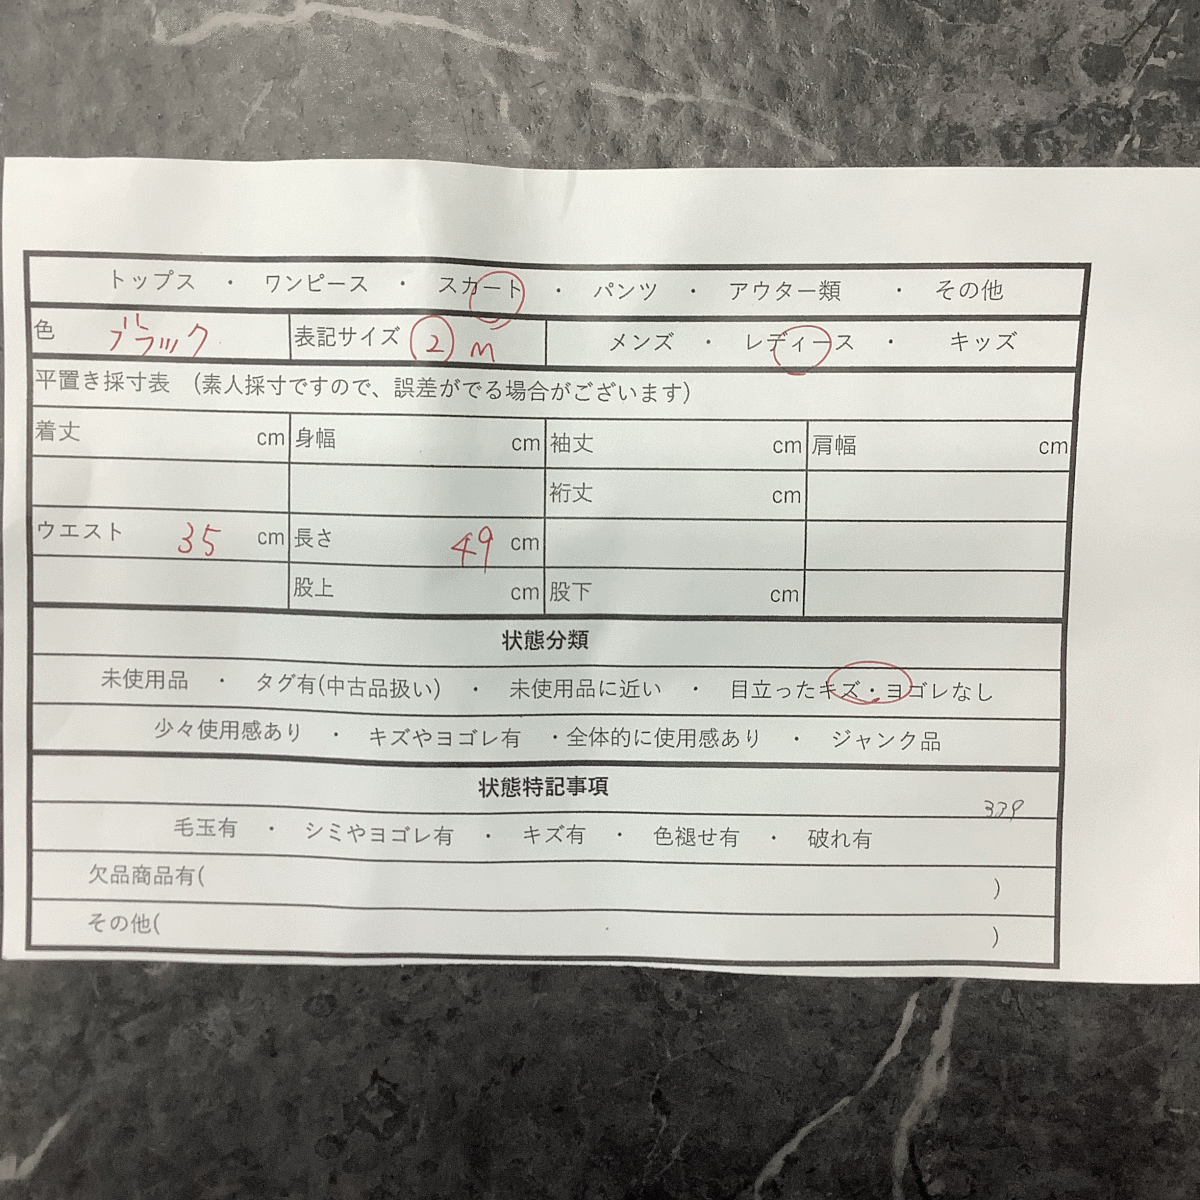 トップス ・ ワンピース ・ スカート ・ パンツ ・ アウター類 ・ その他
色 ブラック 表記サイズ ② M メンズ ・ レディース ・ キッズ
平置き採寸表 (素人採寸ですので、誤差がでる場合がございます)
着丈 cm 身幅 cm 袖丈 cm 肩幅 cm
裄丈 cm
ウエスト 35 cm 長さ 49 cm
股上 cm 股下 cm
状態分類
未使用品 ・ タグ有(中古品扱い) ・ 未使用品に近い ・ 目立ったキズ・ヨゴレなし
少々使用感あり ・ キズやヨゴレ有 ・全体的に使用感あり ・ ジャンク品
状態特記事項
339
毛玉有 ・ シミやヨゴレ有 ・ キズ有 ・ 色褪せ有 ・ 破れ有
欠品商品有( )
その他( )